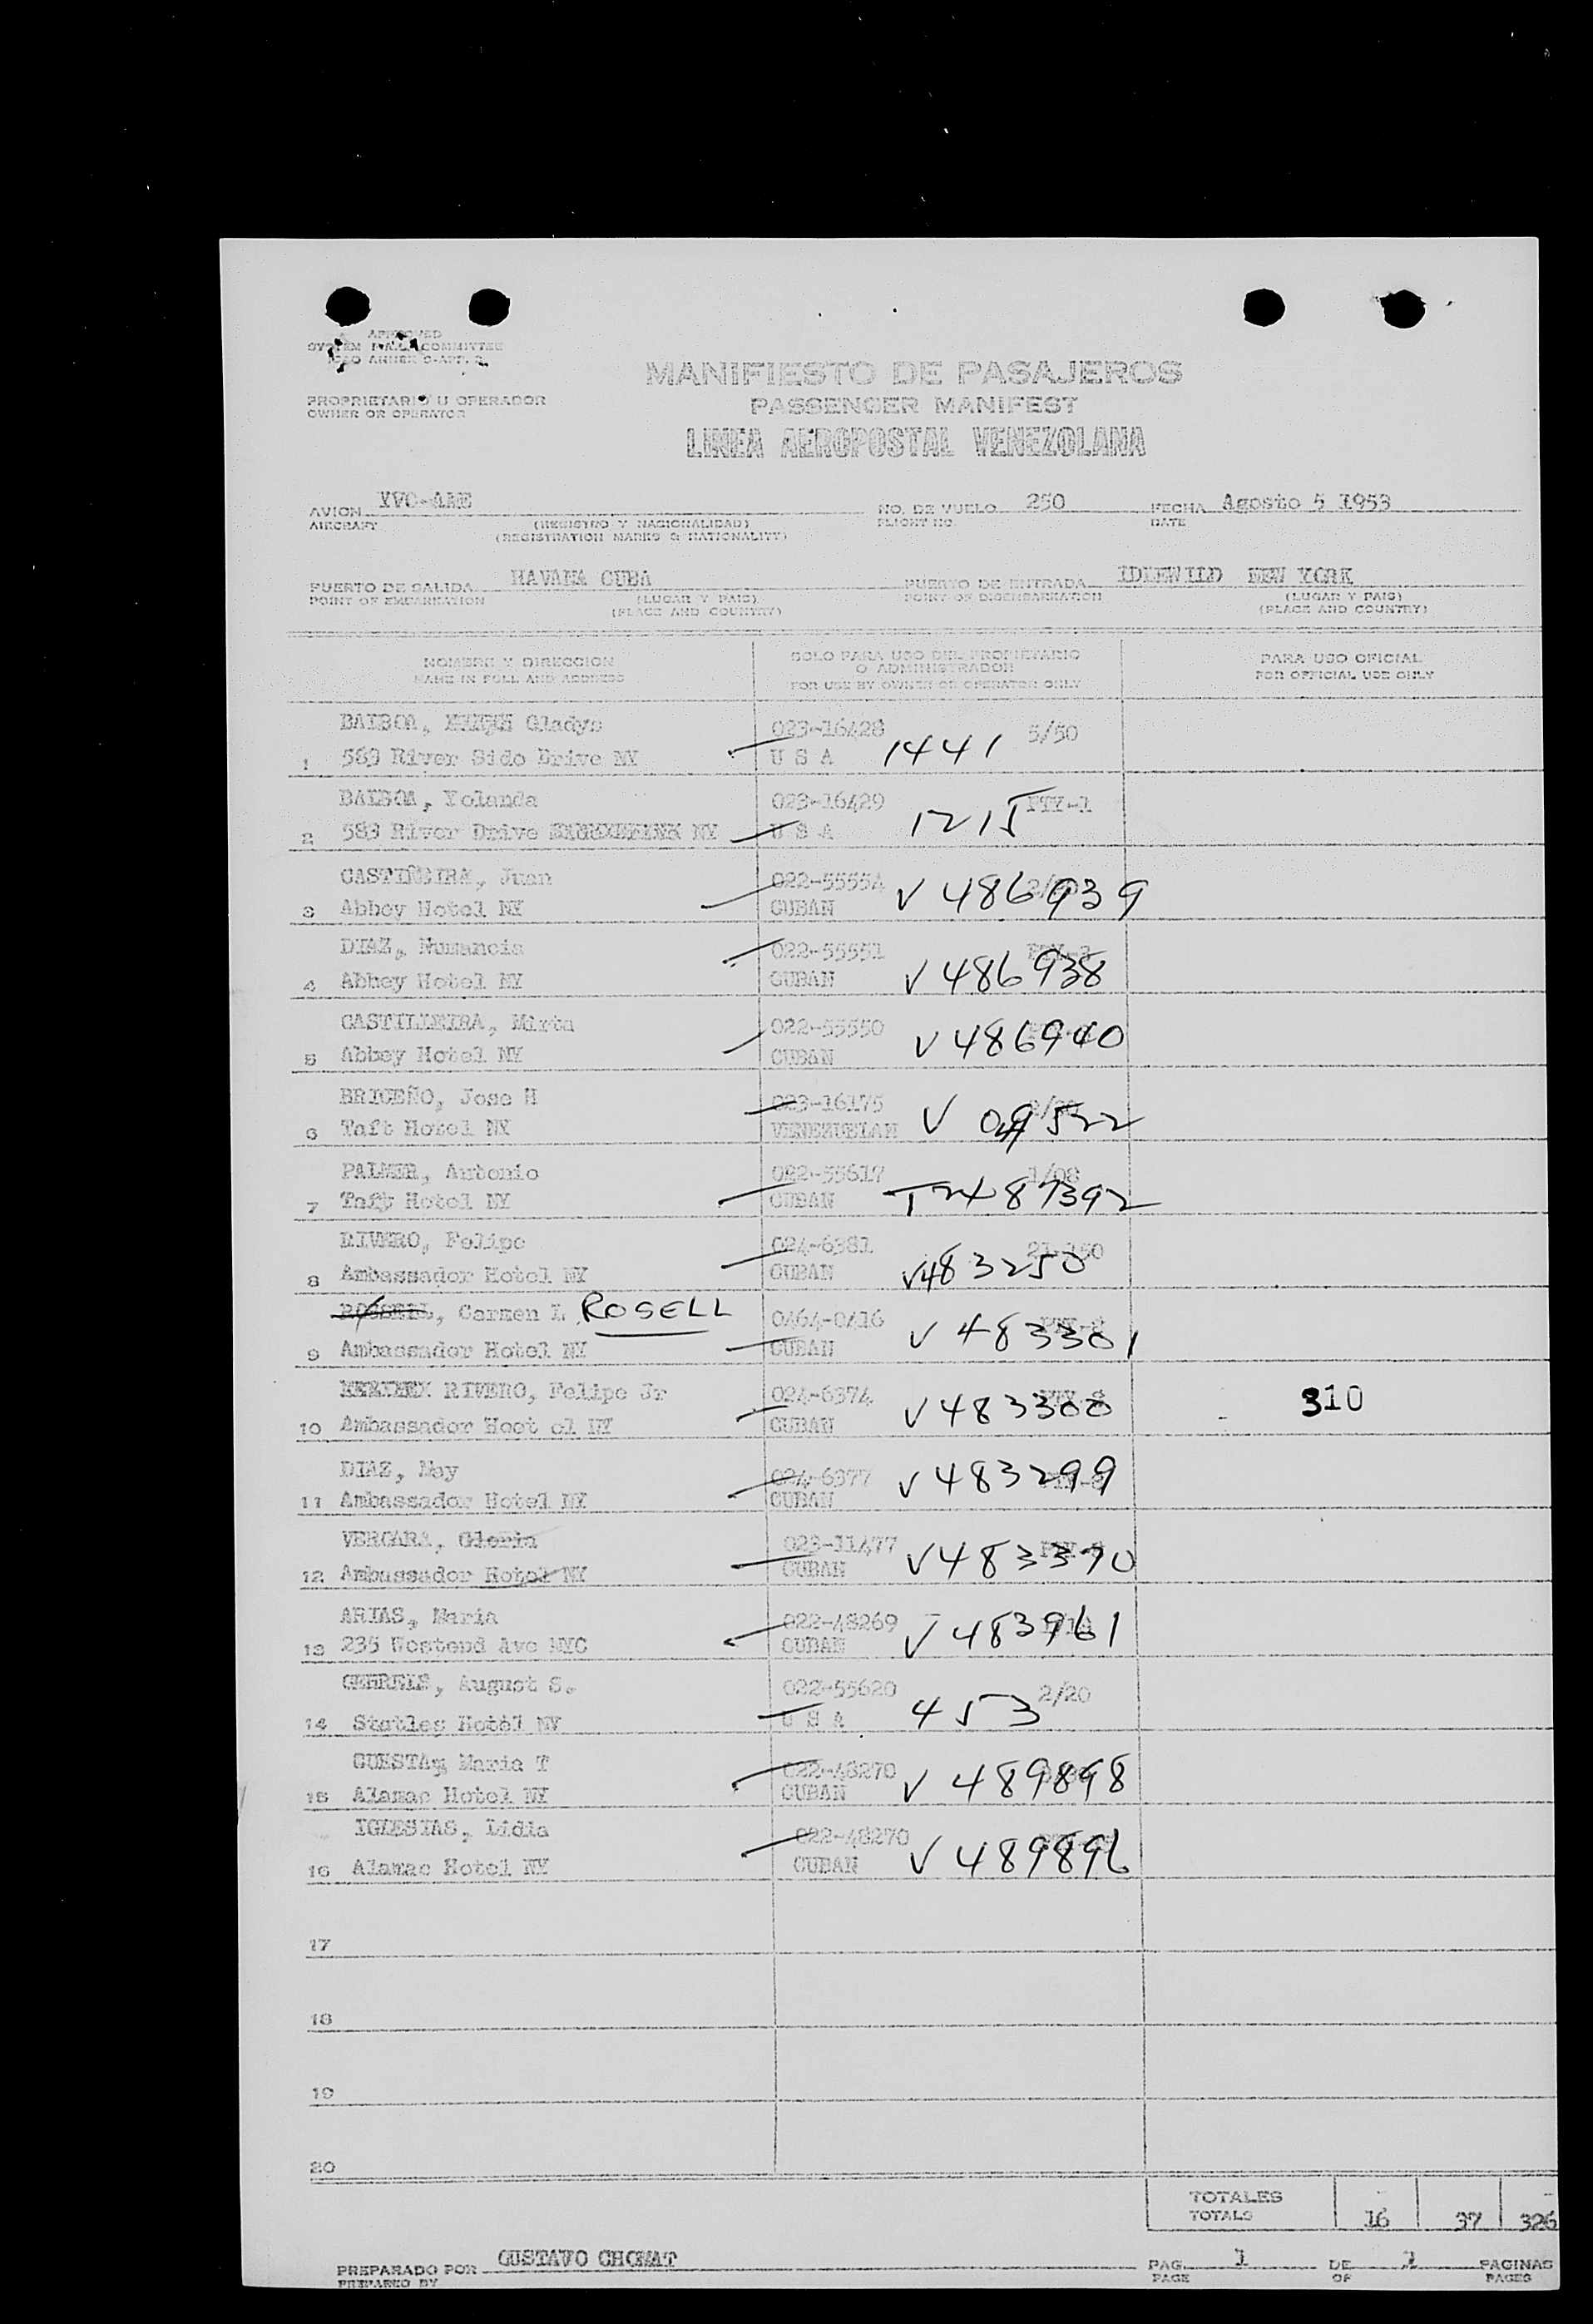 APPROVED
SYSTEM F.A.L. COMMITTEE
ICAO ANNEX 9-APP. 2
MANIFIESTO DE PASAJEROS
PROPRIETARIO U OPERADOR
OWNER OR OPERATOR
PASSENGER MANIFEST
LINEA AEROPOSTAL VENEZOLANA
AVION YVC-AME NO. DE VUELO 250 FECHA Agosto 5 1953
AIRCRAFT (REGISTRO Y NACIONALIDAD) FLIGHT NO. DATE
(REGISTRATION MARKS & NATIONALITY)
PUERTO DE SALIDA HAVANA CUBA PUERTO DE ENTRADA IDLEWILD NEW YORK
POINT OF EMBARKATION (LUGAR Y PAIS) POINT OF DISEMBARKATION (LUGAR Y PAIS)
(PLACE AND COUNTRY) (PLACE AND COUNTRY)
NOMBRE Y DIRECCION SOLO PARA USO DEL PROPIETARIO PARA USO OFICIAL
NAME IN FULL AND ADDRESS O ADMINISTRADOR FOR OFFICIAL USE ONLY
FOR USE BY OWNER OR OPERATOR ONLY
BALBOA, Gladys 023-16428 5/50
1 583 River Side Drive NY U S A 1441
BALBOA, Yolanda 023-16429 FTY-1
2 583 River Drive NY U S A 1215
CASTIÑEIRA, Juan 022-55554
3 Abbey Hotel NY CUBAN V 486939
DIAZ, Numancia 022-55551
4 Abbey Hotel NY CUBAN V 486938
CASTILLEIRA, Mirta 022-55550
5 Abbey Hotel NY CUBAN V 486940
BRICEÑO, Jose H 023-16175
6 Taft Hotel NY VENEZUELAN V 09522
PALMER, Antonio 022-55617 1/08
7 Taft Hotel NY CUBAN 487392
RIVERO, Felipe 024-6381
8 Ambassador Hotel NY CUBAN V483250
Carmen L ROSELL 0464-0416
9 Ambassador Hotel NY CUBAN V 483301
RIVERO, Felipe Jr 024-6374
10 Ambassador Hoot el NY CUBAN V 483300 310
DIAZ, May 024-6377
11 Ambassador Hotel NY CUBAN V 483299
VERGARA, Gloria 023-11477
12 Ambassador Hotel NY CUBAN V 483370
ARIAS, Maria 022-48269
13 235 Westend Ave NYC CUBAN V 483961
GEHRELS, August S. 022-55620 2/20
14 Statles Hotel NY U S A 453
CUESTA, Maria T 022-48270
15 Alamac Hotel NY CUBAN V 489898
IGLESIAS, Lidia 022-48270
16 Alamac Hotel NY CUBAN V 489896
17
18
19
20
TOTALES 16 37 326
TOTALS
PREPARADO POR GUSTAVO CHOMAT PAG. 1 DE 1 PAGINAS
PREPARED BY PAGE OF PAGES